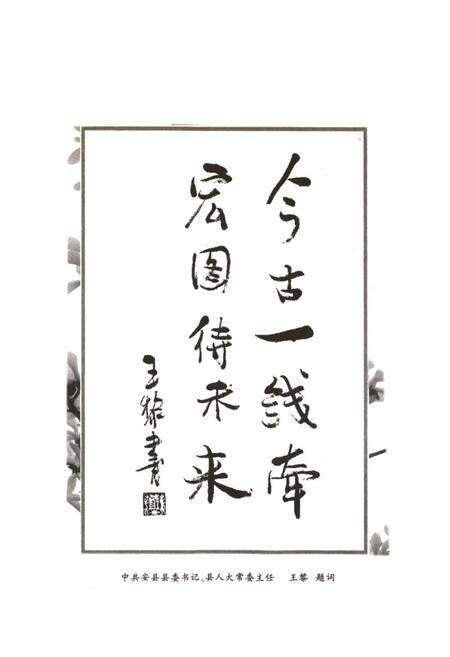 今古一线牵
宏图待未来
王黎书
中共安县县委书记、县人大常委主任 王黎 题词